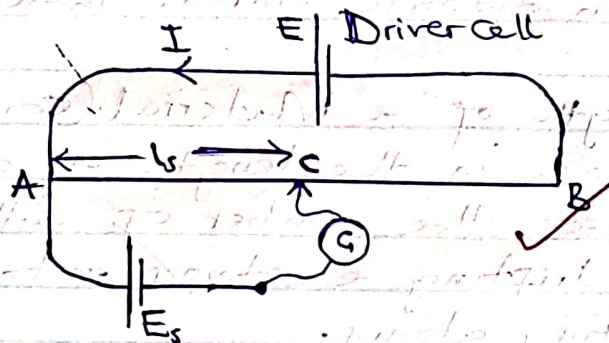 I E Driver cell
ls C
A B
G
Es